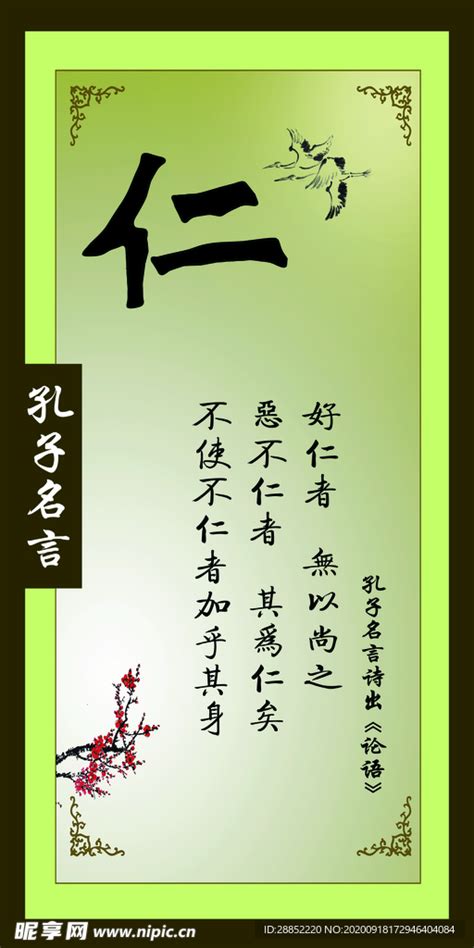 仁
孔子名言
好仁者 無以尚之
惡不仁者 其爲仁矣
不使不仁者加乎其身
孔子名言诗出《论语》
昵享网 www.nipic.cn
ID:28852220 NO:20200918172946404084